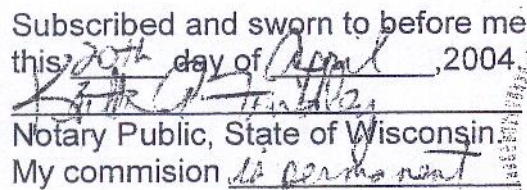 Subscribed and sworn to before me
this 20th day of April, 2004.
Notary Public, State of Wisconsin.
My commision is permanent